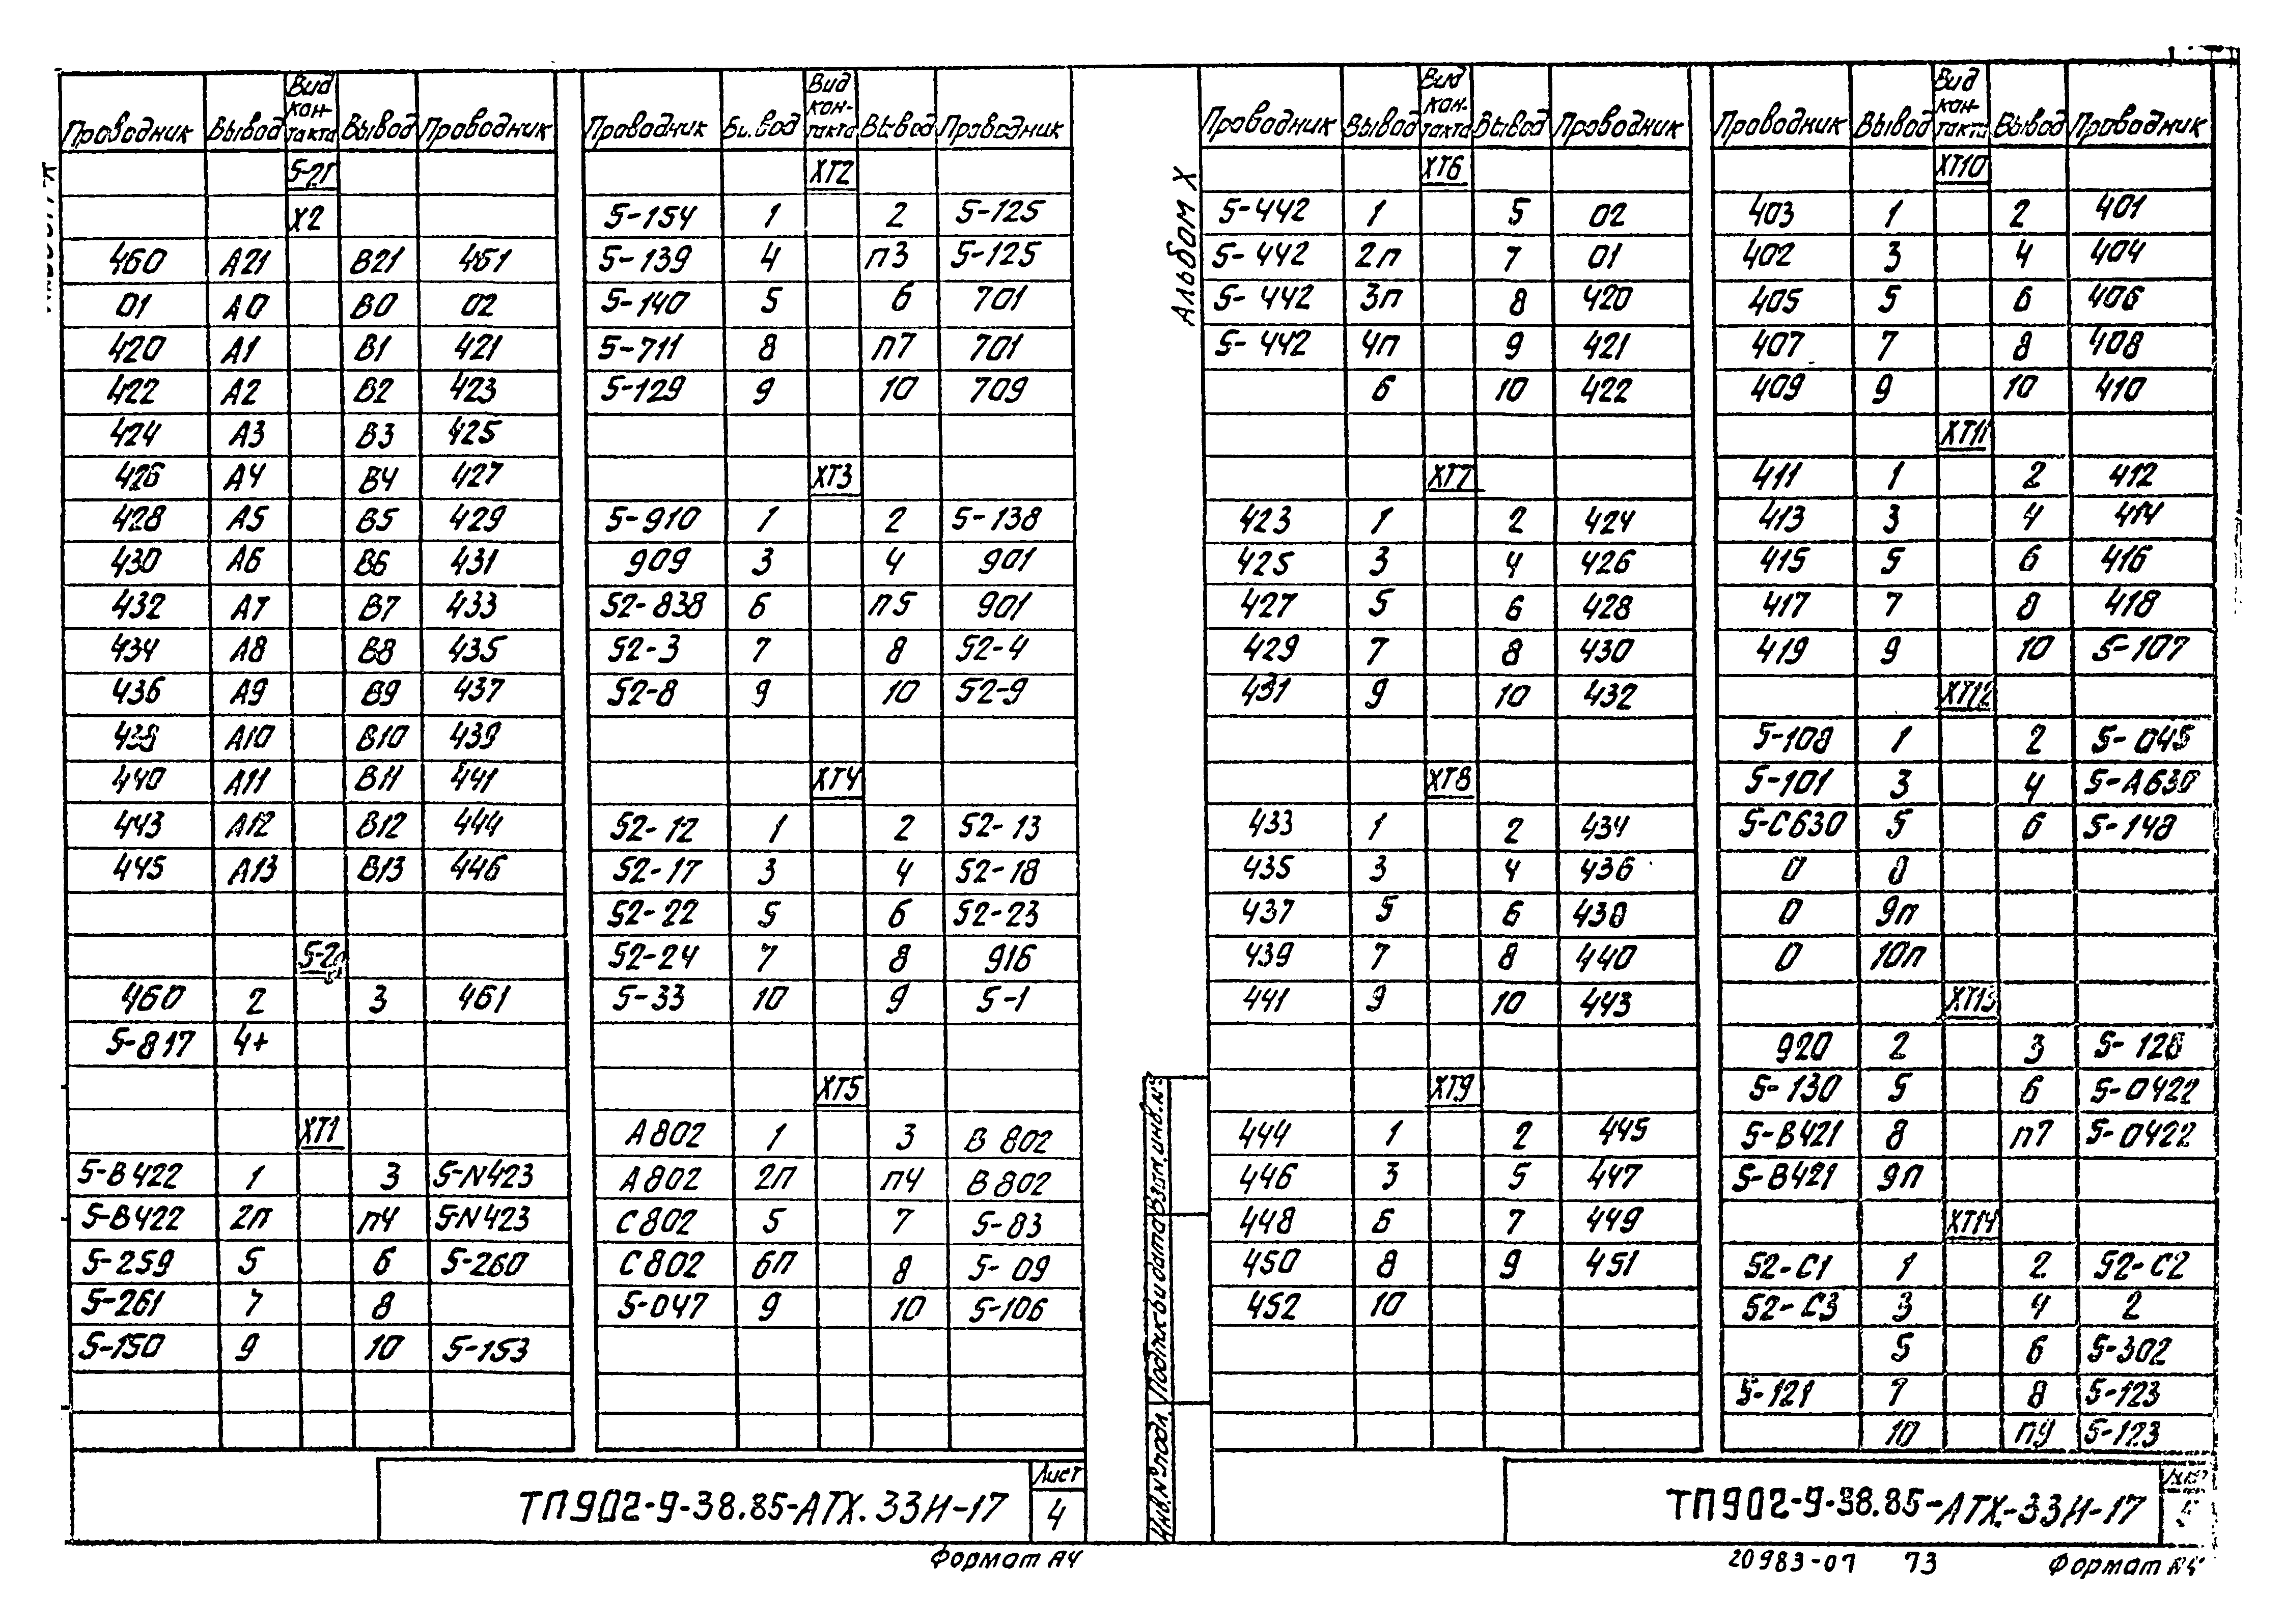 Проводник Вывод Вид кон-такта Вывод Проводник
5-21
X2
460 A21 B21 461
01 A0 B0 02
420 A1 B1 421
422 A2 B2 423
424 A3 B3 425
426 A4 B4 427
428 A5 B5 429
430 A6 B6 431
432 A7 B7 433
434 A8 B8 435
436 A9 B9 437
438 A10 B10 439
440 A11 B11 441
443 A12 B12 444
445 A13 B13 446
460 2 3 461
5-817 4+
XT1
5-B422 1 3 5-N423
5-B422 2п п4 5-N423
5-259 5 6 5-260
5-261 7 8
5-150 9 10 5-153
Проводник Вывод Вид кон-такта Вывод Проводник
XT2
5-154 1 2 5-125
5-139 4 п3 5-125
5-140 5 6 701
5-711 8 п7 701
5-129 9 10 709
XT3
5-910 1 2 5-138
909 3 4 901
52-838 6 п5 901
52-3 7 8 52-4
52-8 9 10 52-9
XT4
52-12 1 2 52-13
52-17 3 4 52-18
52-22 5 6 52-23
52-24 7 8 916
5-33 10 9 5-1
XT5
A802 1 3 B802
A802 2п п4 B802
C802 5 7 5-83
C802 6п 8 5-09
5-047 9 10 5-106
ТП902-9-38.85-АТХ.33И-17
Лист
4
Формат А4
Альбом X
Проводник Вывод Вид кон-такта Вывод Проводник
XT6
5-442 1 5 02
5-442 2п 7 01
5-442 3п 8 420
5-442 4п 9 421
6 10 422
XT7
423 1 2 424
425 3 4 426
427 5 6 428
429 7 8 430
431 9 10 432
XT8
433 1 2 434
435 3 4 436
437 5 6 438
439 7 8 440
441 9 10 443
XT9
444 1 2 445
446 3 5 447
448 6 7 449
450 8 9 451
452 10
Проводник Вывод Вид кон-такта Вывод Проводник
XT10
403 1 2 401
402 3 4 404
405 5 6 406
407 7 8 408
409 9 10 410
XT11
411 1 2 412
413 3 4 414
415 5 6 416
417 7 8 418
419 9 10 5-107
XT12
5-108 1 2 5-045
5-101 3 4 5-A630
5-C630 5 6 5-148
0 8
0 9п
0 10п
XT13
920 2 3 5-128
5-130 5 6 5-0422
5-B421 8 п7 5-0422
5-B421 9п
XT14
52-C1 1 2 52-C2
52-C3 3 4 2
5 6 5-302
5-121 7 8 5-123
10 п9 5-123
Инв.№подл. Подпись и дата Взам.инв.№
ТП902-9-38.85-АТХ-33И-17
Лист
5
20983-07 73 Формат А4